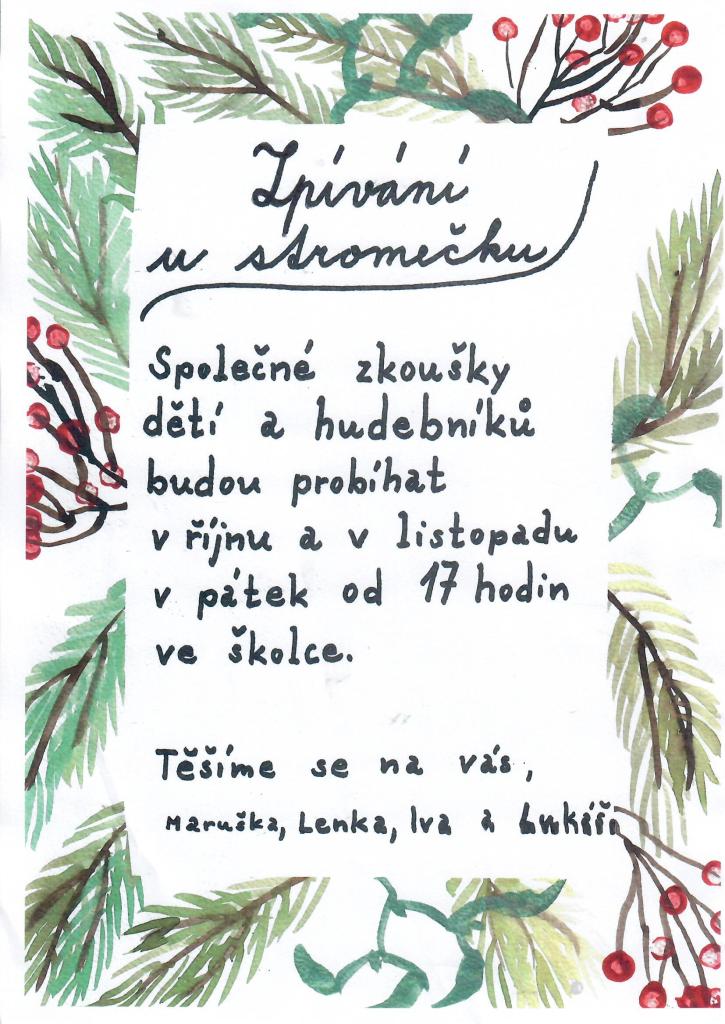 Zpívání
u stromečku
Společné zkoušky
dětí a hudebníků
budou probíhat
v říjnu a v listopadu
v pátek od 17 hodin
ve školce.
Těšíme se na vás,
Maruška, Lenka, Iva a